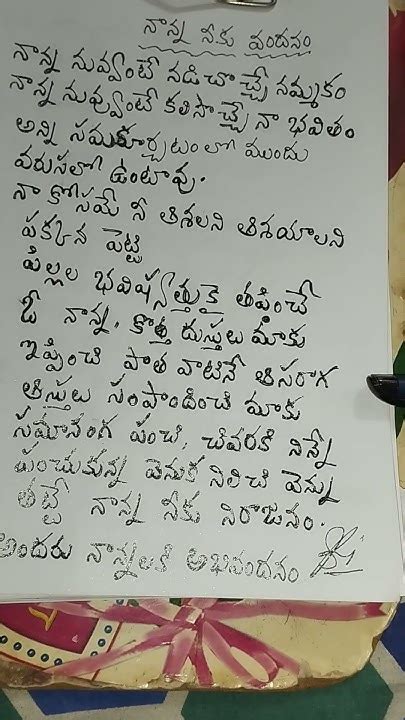 నాన్న నీకు వందనం
నాన్న నువ్వంటే నడిచొచ్చే నమ్మకం
నాన్న నువ్వుంటే కలిసొచ్చే నా భవితం
అన్ని సమకూర్చటంలో ముందు
వరుసలో ఉంటావు.
నా కోసమే నీ ఆశలని ఆశయాలని
పక్కన పెట్టి
పిల్లల భవిష్యత్తుకై తపించే
ఓ నాన్న, కొత్త దుస్తులు మాకు
ఇప్పించి పాత వాటినే ఆసరాగ
ఆస్తులు సంపాదించి మాకు
సమానంగ పంచి, చివరకి నిన్నే
పంచుకున్న వెనుక నిలిచి వెన్ను
తట్టే నాన్న నీకు నిరాజనం.
అందరు నాన్నలకి అభినందనం